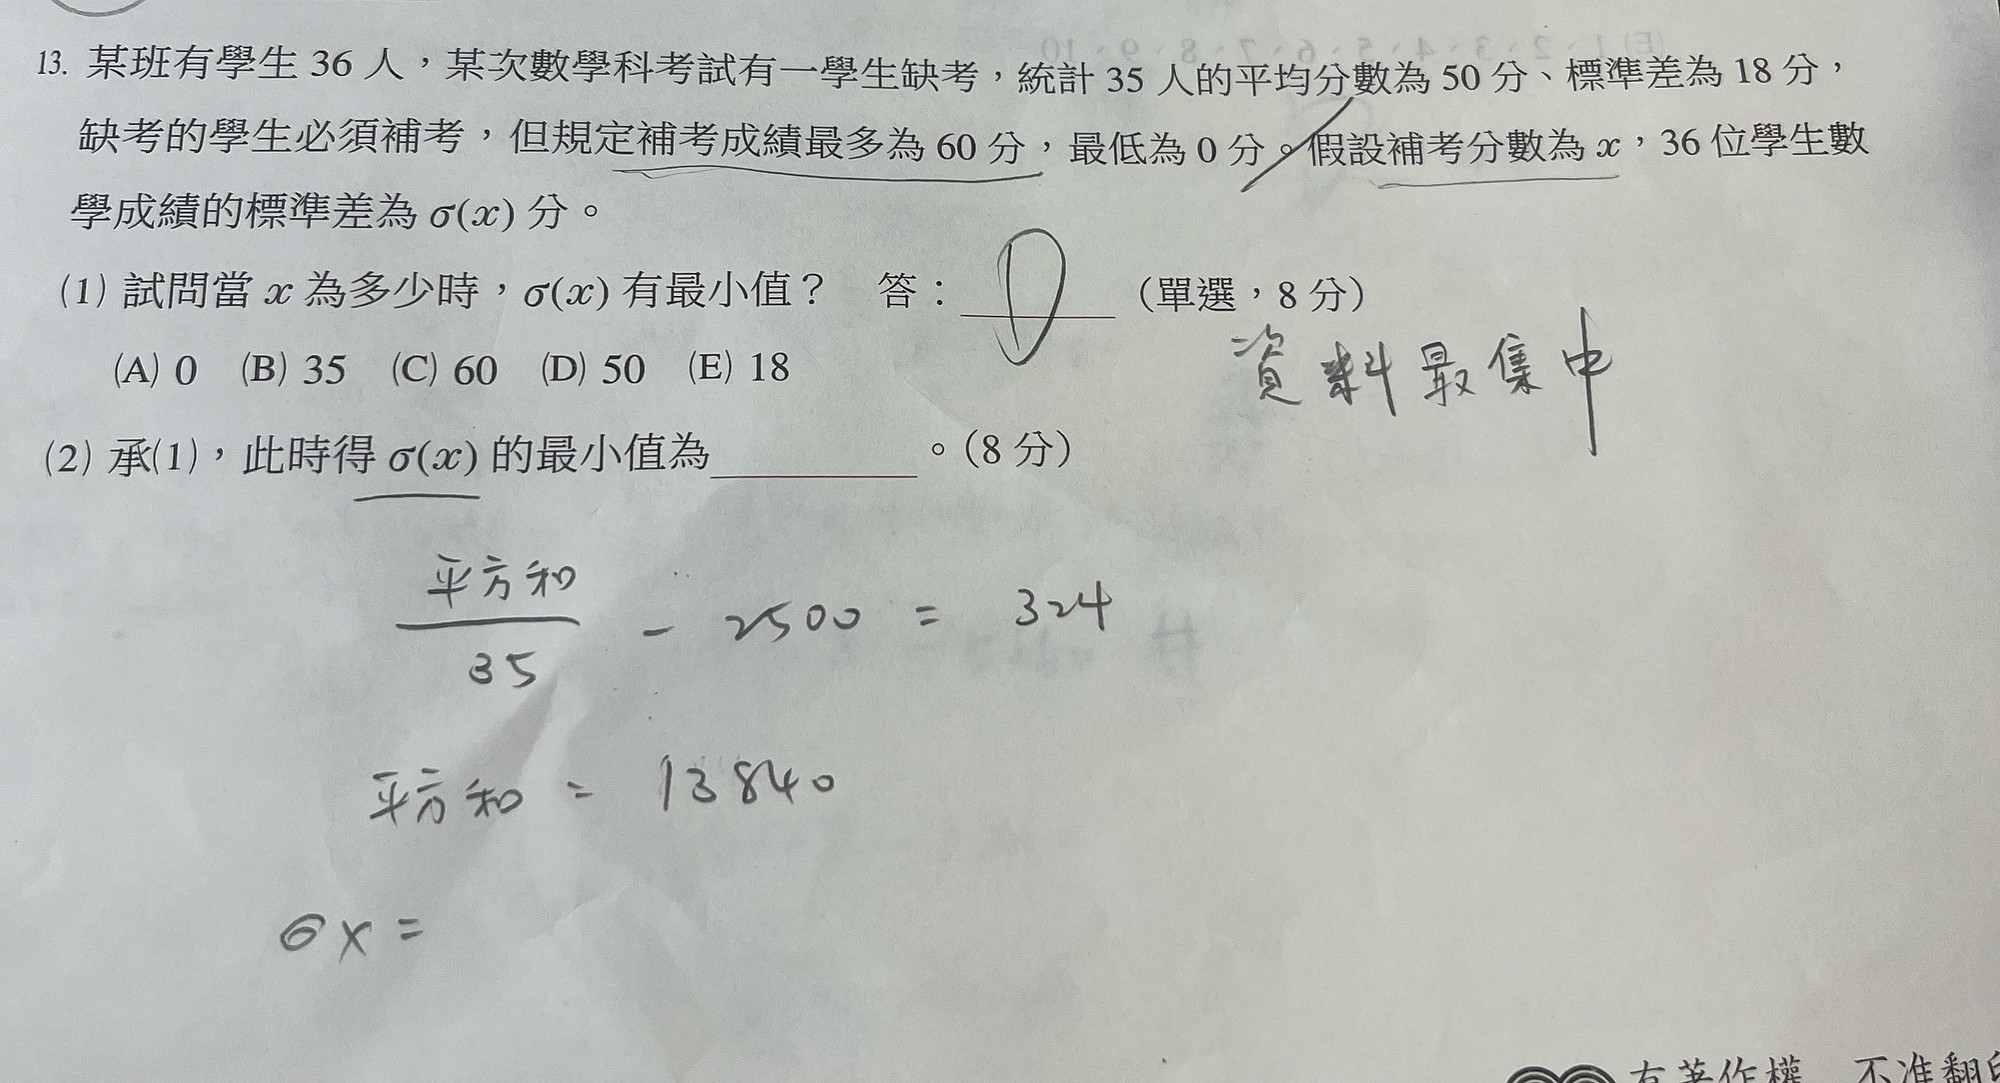 13. 某班有學生 36 人，某次數學科考試有一學生缺考，統計 35 人的平均分數為 50 分、標準差為 18 分，
缺考的學生必須補考，但規定補考成績最多為 60 分，最低為 0 分。假設補考分數為 x，36 位學生數
學成績的標準差為 σ(x) 分。
(1) 試問當 x 為多少時，σ(x) 有最小值？ 答： D （單選，8 分）
(A) 0 (B) 35 (C) 60 (D) 50 (E) 18
資料最集中
(2) 承(1)，此時得 σ(x) 的最小值為＿＿＿＿。（8 分）
平方和
/35 - 2500 = 324
平方和 = 13840
σx =
有著作權 不准翻印